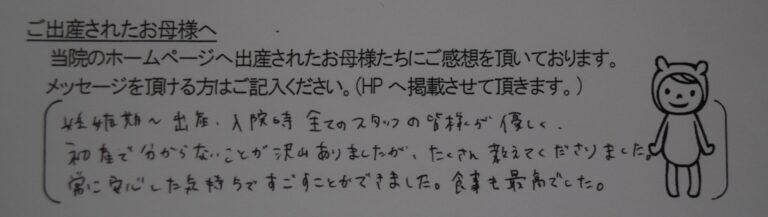 ご出産されたお母様へ
当院のホームページへ出産されたお母様たちにご感想を頂いております。
メッセージを頂ける方はご記入ください。(HPへ掲載させて頂きます。)
妊娠期～出産、入院時 全てのスタッフの皆様が優しく、
初産で分からないことが沢山ありましたが、たくさん教えてくださりました。
常に安心した気持ちですごすことができました。食事も最高でした。